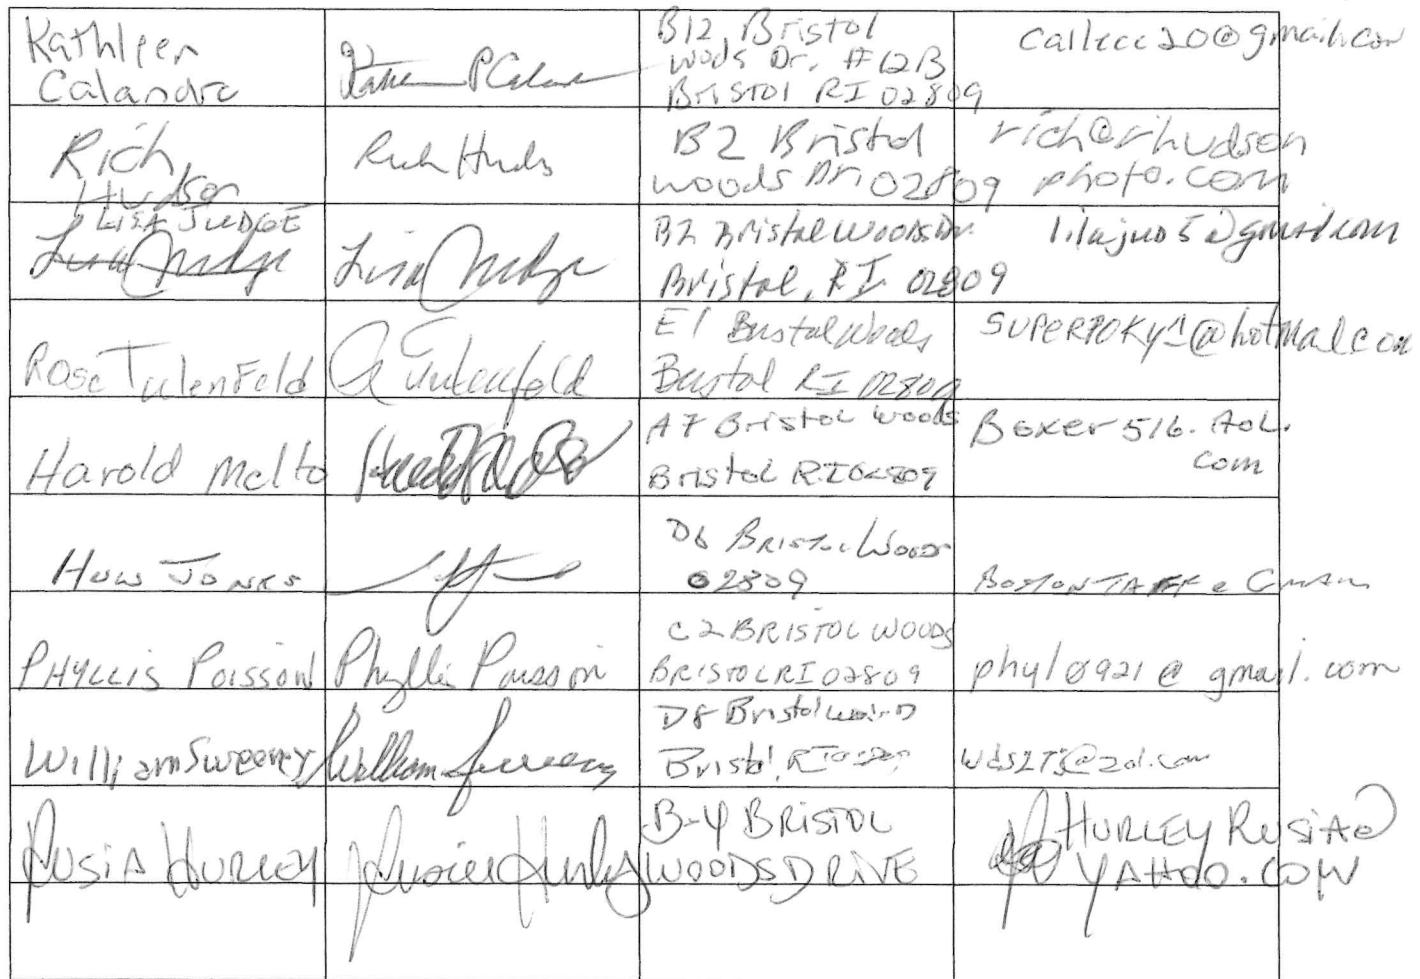 Kathleen
Calandra
B12, Bristol
Woods Dr. #12B
Bristol RI 02809
Rich
Hudson
Rich Hudson
B2 Bristol
Woods Dr. 02809
rich@rhudson
photo.com
LISA JUDGE
Lisa Judge
Lisa Judge
B2 Bristol Woods Dr.
Bristol, RI 02809
E1 Bristol Woods
Bristol RI 02809
Rose Tulenfeld
R Tulenfeld
@hotmail.com
Harold Melto
A7 Bristol Woods
Bristol RI 02809
Boxer516.AOL.
com
HUW JONES
D6 BRISTOL WOODS
02809
PHYLLIS POISSON
Phyllis Poisson
C2 BRISTOL WOODS
BRISTOL RI 02809
phyl0921@gmail.com
William Sweeney
William Sweeney
D8 Bristol Woods
Bristol, RI 02809
RUSIA HURLEY
Rusia Hurley
B-4 BRISTOL
WOODS DRIVE
HURLEYRUSIA@
YAHOO.COM